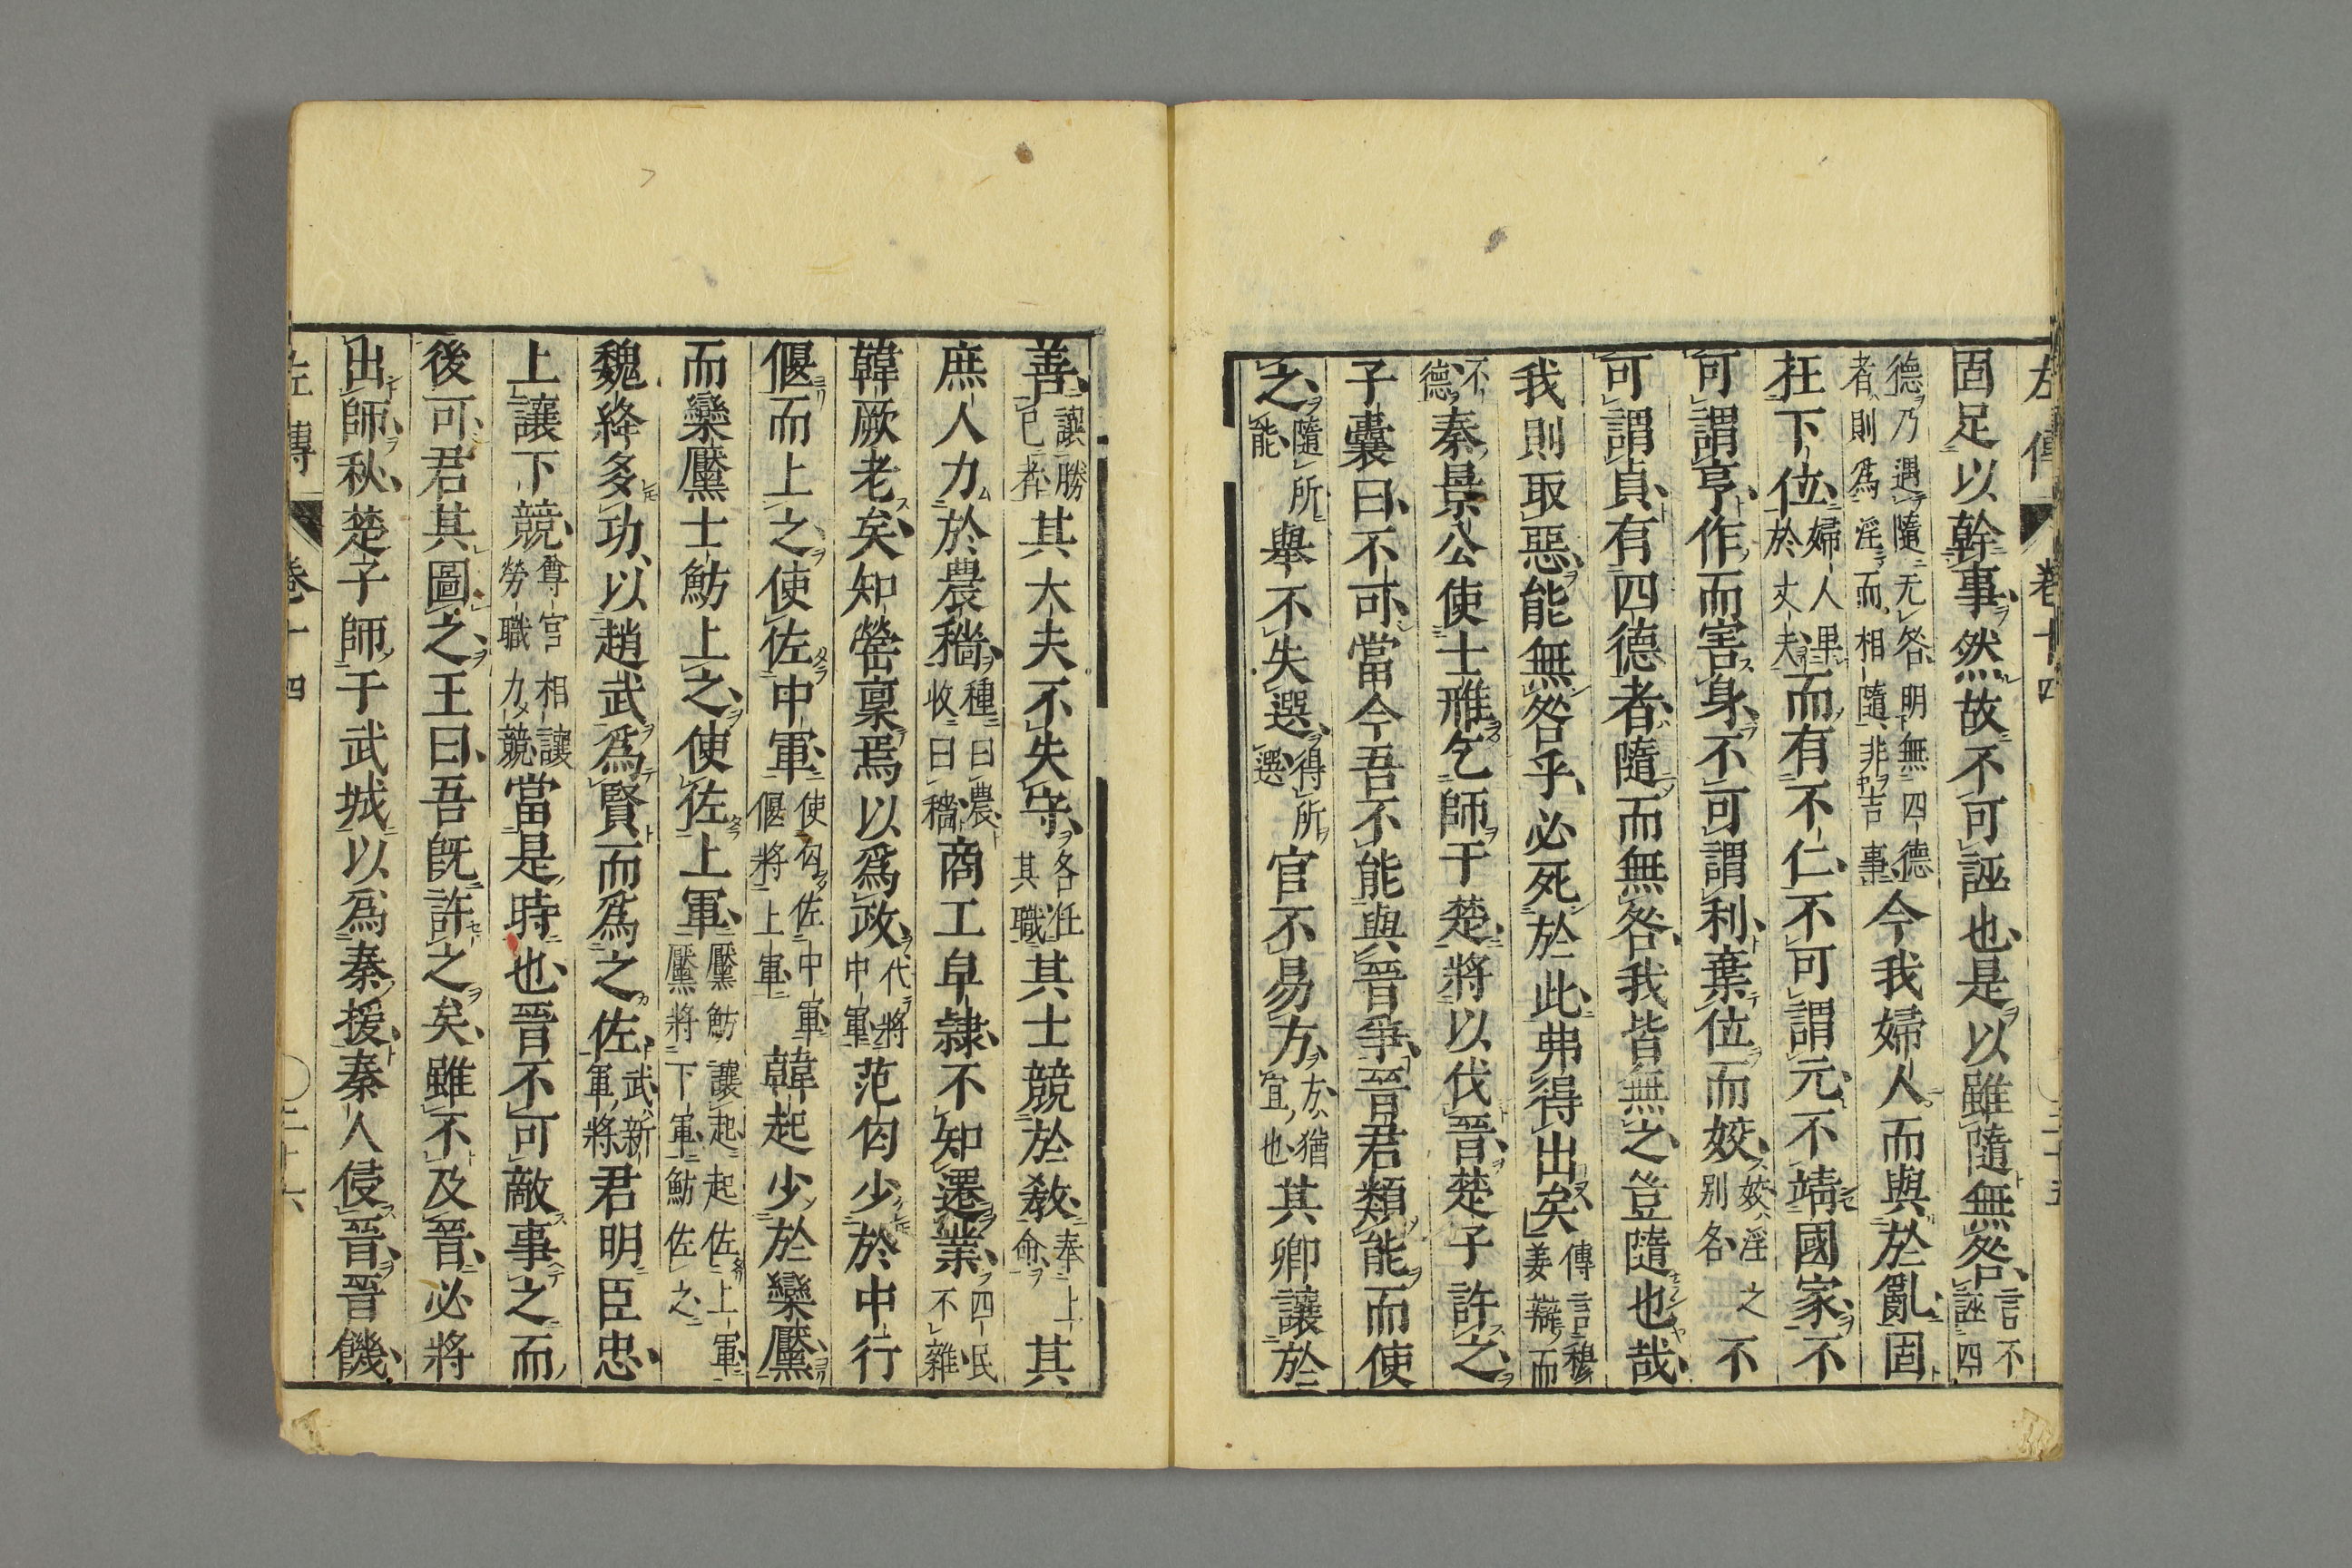 左傳 卷十四
固足以幹事然故不可誣也是以雖隨無咎言不誣四
德乃遇隨无咎明無四德者則爲淫而相隨非吉事今我婦人而與於亂固
在下位婦人卑於丈夫而有不仁不可謂元不靖國家不
可謂亨作而害身不可謂利棄位而姣姣淫之別名不
可謂貞有四德者隨而無咎我皆無之豈隨也哉
我則取惡能無咎乎必死於此弗得出矣傳言穆姜辯而
不德秦景公使士雃乞師于楚將以伐晉楚子許之
子囊曰不可當今吾不能與晉爭晉君類能而使
之隨所能舉不失選得所選官不易方方猶宜也其卿讓於
善讓勝己者其大夫不失守各任其職其士競於教奉上命其
庶人力於農穡種曰農收曰穡商工皁隷不知遷業四民不雜
韓厥老矣知罃稟焉以爲政代將中軍范匄少於中行
偃而上之使佐中軍使匄佐中軍偃將上軍韓起少於欒黶
而欒黶士魴上之使佐上軍黶魴讓起起佐上軍黶將下軍魴佐之
魏絳多功以趙武爲賢而爲之佐武新軍將君明臣忠
上讓下競尊官相讓勞職力競當是時也晉不可敵事之而
後可君其圖之王曰吾旣許之矣雖不及晉必將
出師秋楚子師于武城以爲秦援秦人侵晉晉饑
左傳 卷十四 二十六